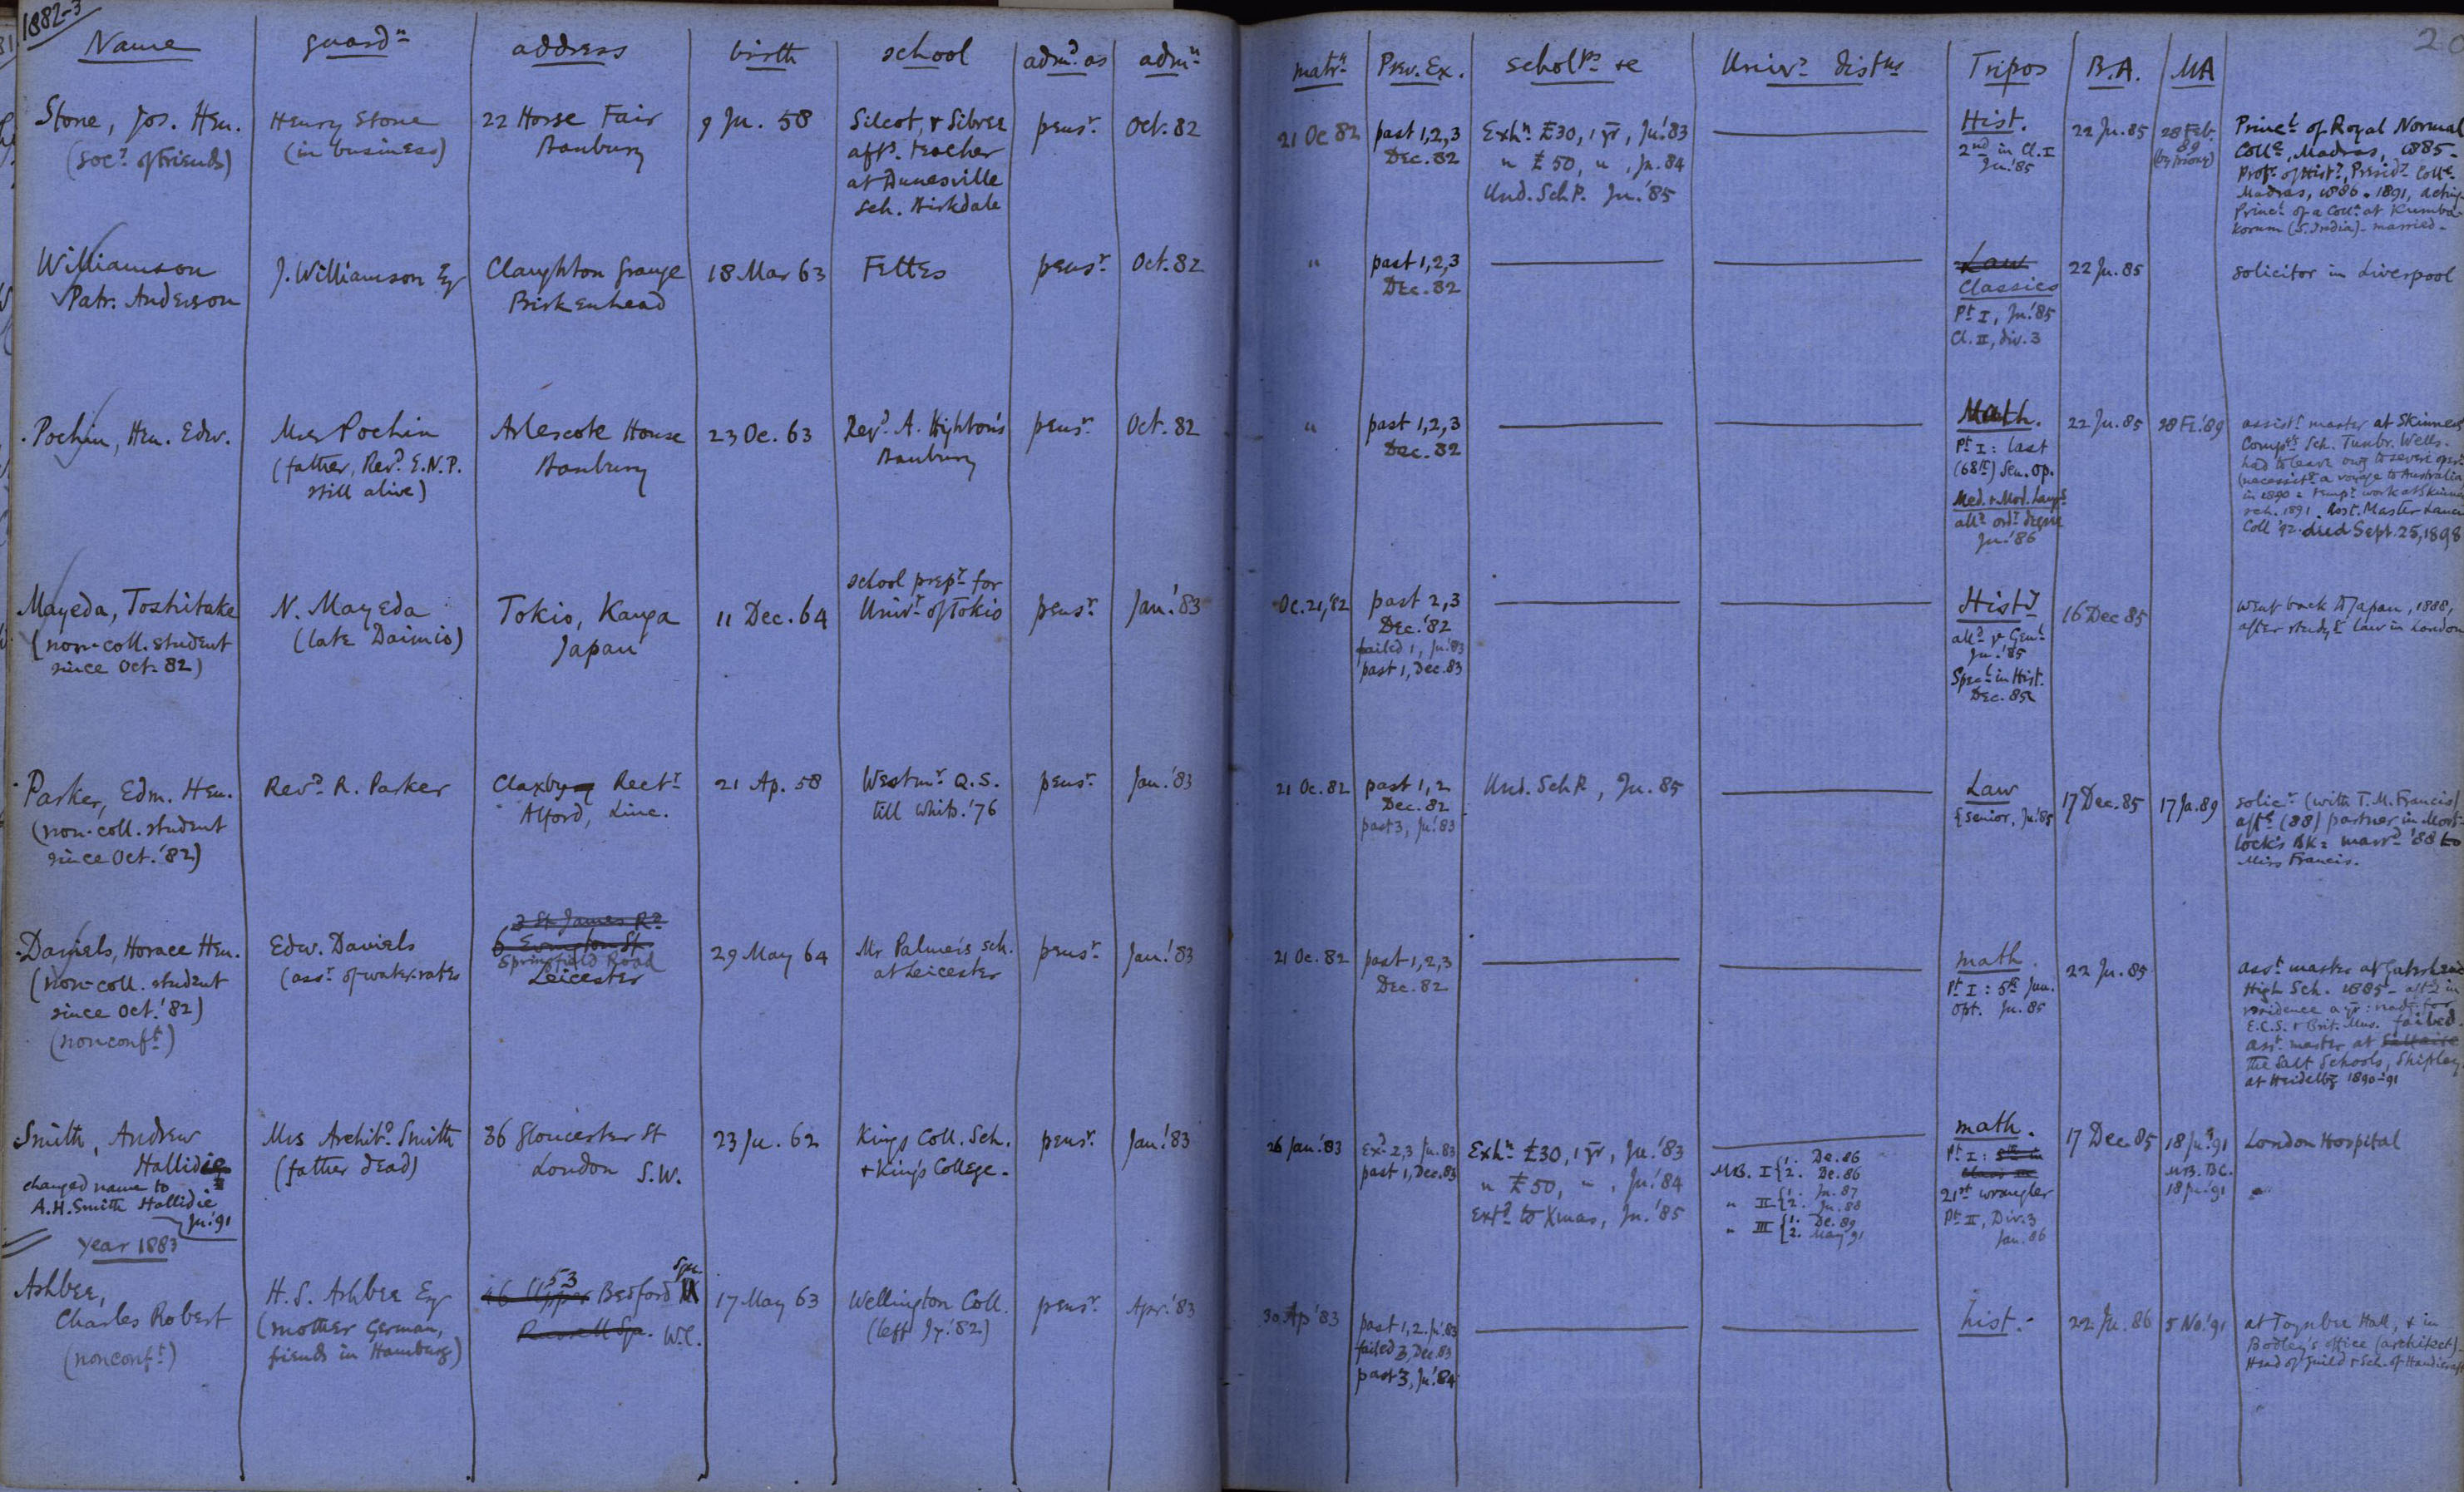 1882-3
Name guardn address birth school admd as admn matrn Prev. Ex. scholps &c Univy distns Tripos B.A. MA
Stone, Jos. Hen.
(Socy of Friends)
Henry Stone
(in business)
22 Horse Fair
Banbury
9 Ju. 58
Silcot, & Sibree
aftds teacher
at
Sch. Birkdale
pensr
Oct. 82
21 Oc 82
past 1,2,3
Dec. 82
Exhn £30, 1 yr, Ju. '83
" £50, " , Ju. 84
Und. Sch.P. Ju. '85
Hist.
2nd in Cl. I
Ju. '85
22 Ju. 85
28 Feb.
89
(by proxy)
Princl of Royal Normal
Colle, Madras, 1885 -
Profr of Histy, Presidy Colle
Madras, 1886 - 1891, acting
Princl of a Colle at Kumba-
korum (S. India) - married -
Williamson
Patr. Anderson
J. Williamson Esq
Claughton Grange
Birkenhead
18 Mar 63
Fettes
pensr
Oct. 82
"
past 1,2,3
Dec. 82
Law
Classics
Pt I, Ju. '85
Cl. II, div. 3
22 Ju. 85
solicitor in Liverpool
Pochin, Hen. Edw.
Mrs Pochin
(father, Revd E.N.P.
still alive)
Arlescote House
Banbury
23 Oc. 63
Revd A. Highton's
Banbury
pensr
Oct. 82
"
past 1,2,3
Dec. 82
Math.
Pt I: last
(68th) Sen. Op.
Med. & Mod. Langs
alld ordy degree
Ju. '86
22 Ju. 85
28 Fe. '89
assistt master at Skinners
Compys Sch. Tunbr. Wells -
had to leave owg to severe opern
(necessitg a voyage to Australia
in 1890 = tempy work at Skinn.
sch. 1891. Asst. Master
Coll '92. died Sept. 25, 1898
Mayeda, Toshitake
(non-coll. student
since Oct. 82)
N. Mayeda
(late Daimio)
Tokio, Kanga
Japan
11 Dec. 64
school prepy for
Univy of Tokio
pensr
Jan. '83
Oc. 21, '82
past 2,3
Dec. '82
failed 1, Ju. '83
past 1, Dec. 83
Histy
alld ye Genl
Ju. '85
Specl in Hist.
Dec. 85
16 Dec 85
went back to Japan, 1888,
after studyg law in London
Parker, Edm. Hen.
(non-coll. student
since Oct. '82)
Revd R. Parker
Claxby Recty
Alford, Linc.
21 Ap. 58
Westmr Q.S.
till Whits. '76
pensr
Jan. '83
21 Oc. 82
past 1,2
Dec. 82
past 3, Ju. '83
Und. Sch.P., Ju. 85
Law
{senior, Ju. '85
17 Dec. 85
17 Ja. 89
solicr (with T.M. Francis)
aftds (88) partner in Mort-
lock's Bk = marrd '88 to
Miss Francis.
Daniels, Horace Hen.
(non-coll. student
since Oct. '82)
(nonconft)
Edw. Daniels
(assr of water-rates
3 St James Rd
6 Evington St.
Springfield Road
Leicester
29 May 64
Mr Palmer's sch.
at Leicester
pensr
Jan. '83
21 Oc. 82
past 1,2,3
Dec. 82
math.
Pt I: 5th Jun.
Opt. Ju. 85
22 Ju. 85
asst master at Gateshead
High Sch. 1885 - aftds in
residence a yr: readg for
E.C.S. & Brit. Mus. failed
asst master at Saltaire
the Salt Schools, Shipley
at Heidelbg 1890-91
Smith, Andrew
Hallidie
changed name to
A.H. Smith Hallidie
Ju. '91
Mrs Archibd Smith
(father dead)
36 Gloucester St
London S.W.
23 Ju. 62
Kings Coll. Sch.
& King's College -
pensr
Jan. '83
26 Jan. '83
Exd 2,3 Ju. 83
past 1, Dec. 83
Exhn £30, 1 yr, Ju. '83
" £50, " , Ju. '84
Extd to Xmas, Ju. '85
MB. I {1. De. 86
2. De. 86
" II {1. Ju. 87
2. Ju. 88
" III {1. De. 89
2. May 91
math.
Pt I:
21st wrangler
Pt II, Div. 3
Jan. 86
17 Dec 85
18 Ju. 91
M.B. B.C.
18 Ju. '91
London Hospital
"
Year 1883
Ashbee,
Charles Robert
(nonconft)
H.S. Ashbee Esq
(mother German,
friends in Hamburg)
46 Upper 53 Bedford Sqre
Russell Sq. W.C.
17 May 63
Wellington Coll.
(left Jy. '82)
pensr
Apr. '83
30 Ap '83
past 1,2. Ju. 83
failed 3, Dec. 83
past 3, Ju. '84
hist. -
22 Ju. 86
5 No. '91
at Toynbee Hall, & in
Bodley's office (architect) -
Head of Guild & Sch. of Handicraft